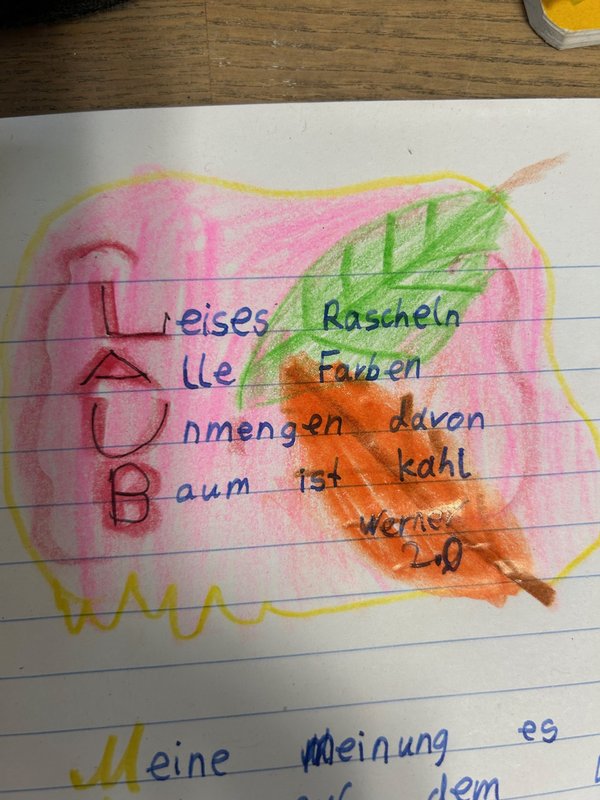 Leises Rascheln
Alle Farben
Unmengen davon
Baum ist kahl
Werner
2.0
Meine Meinung es
dem